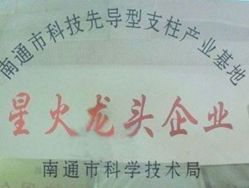 南通市科技先导型支柱产业基地
星火龙头企业
南通市科学技术局